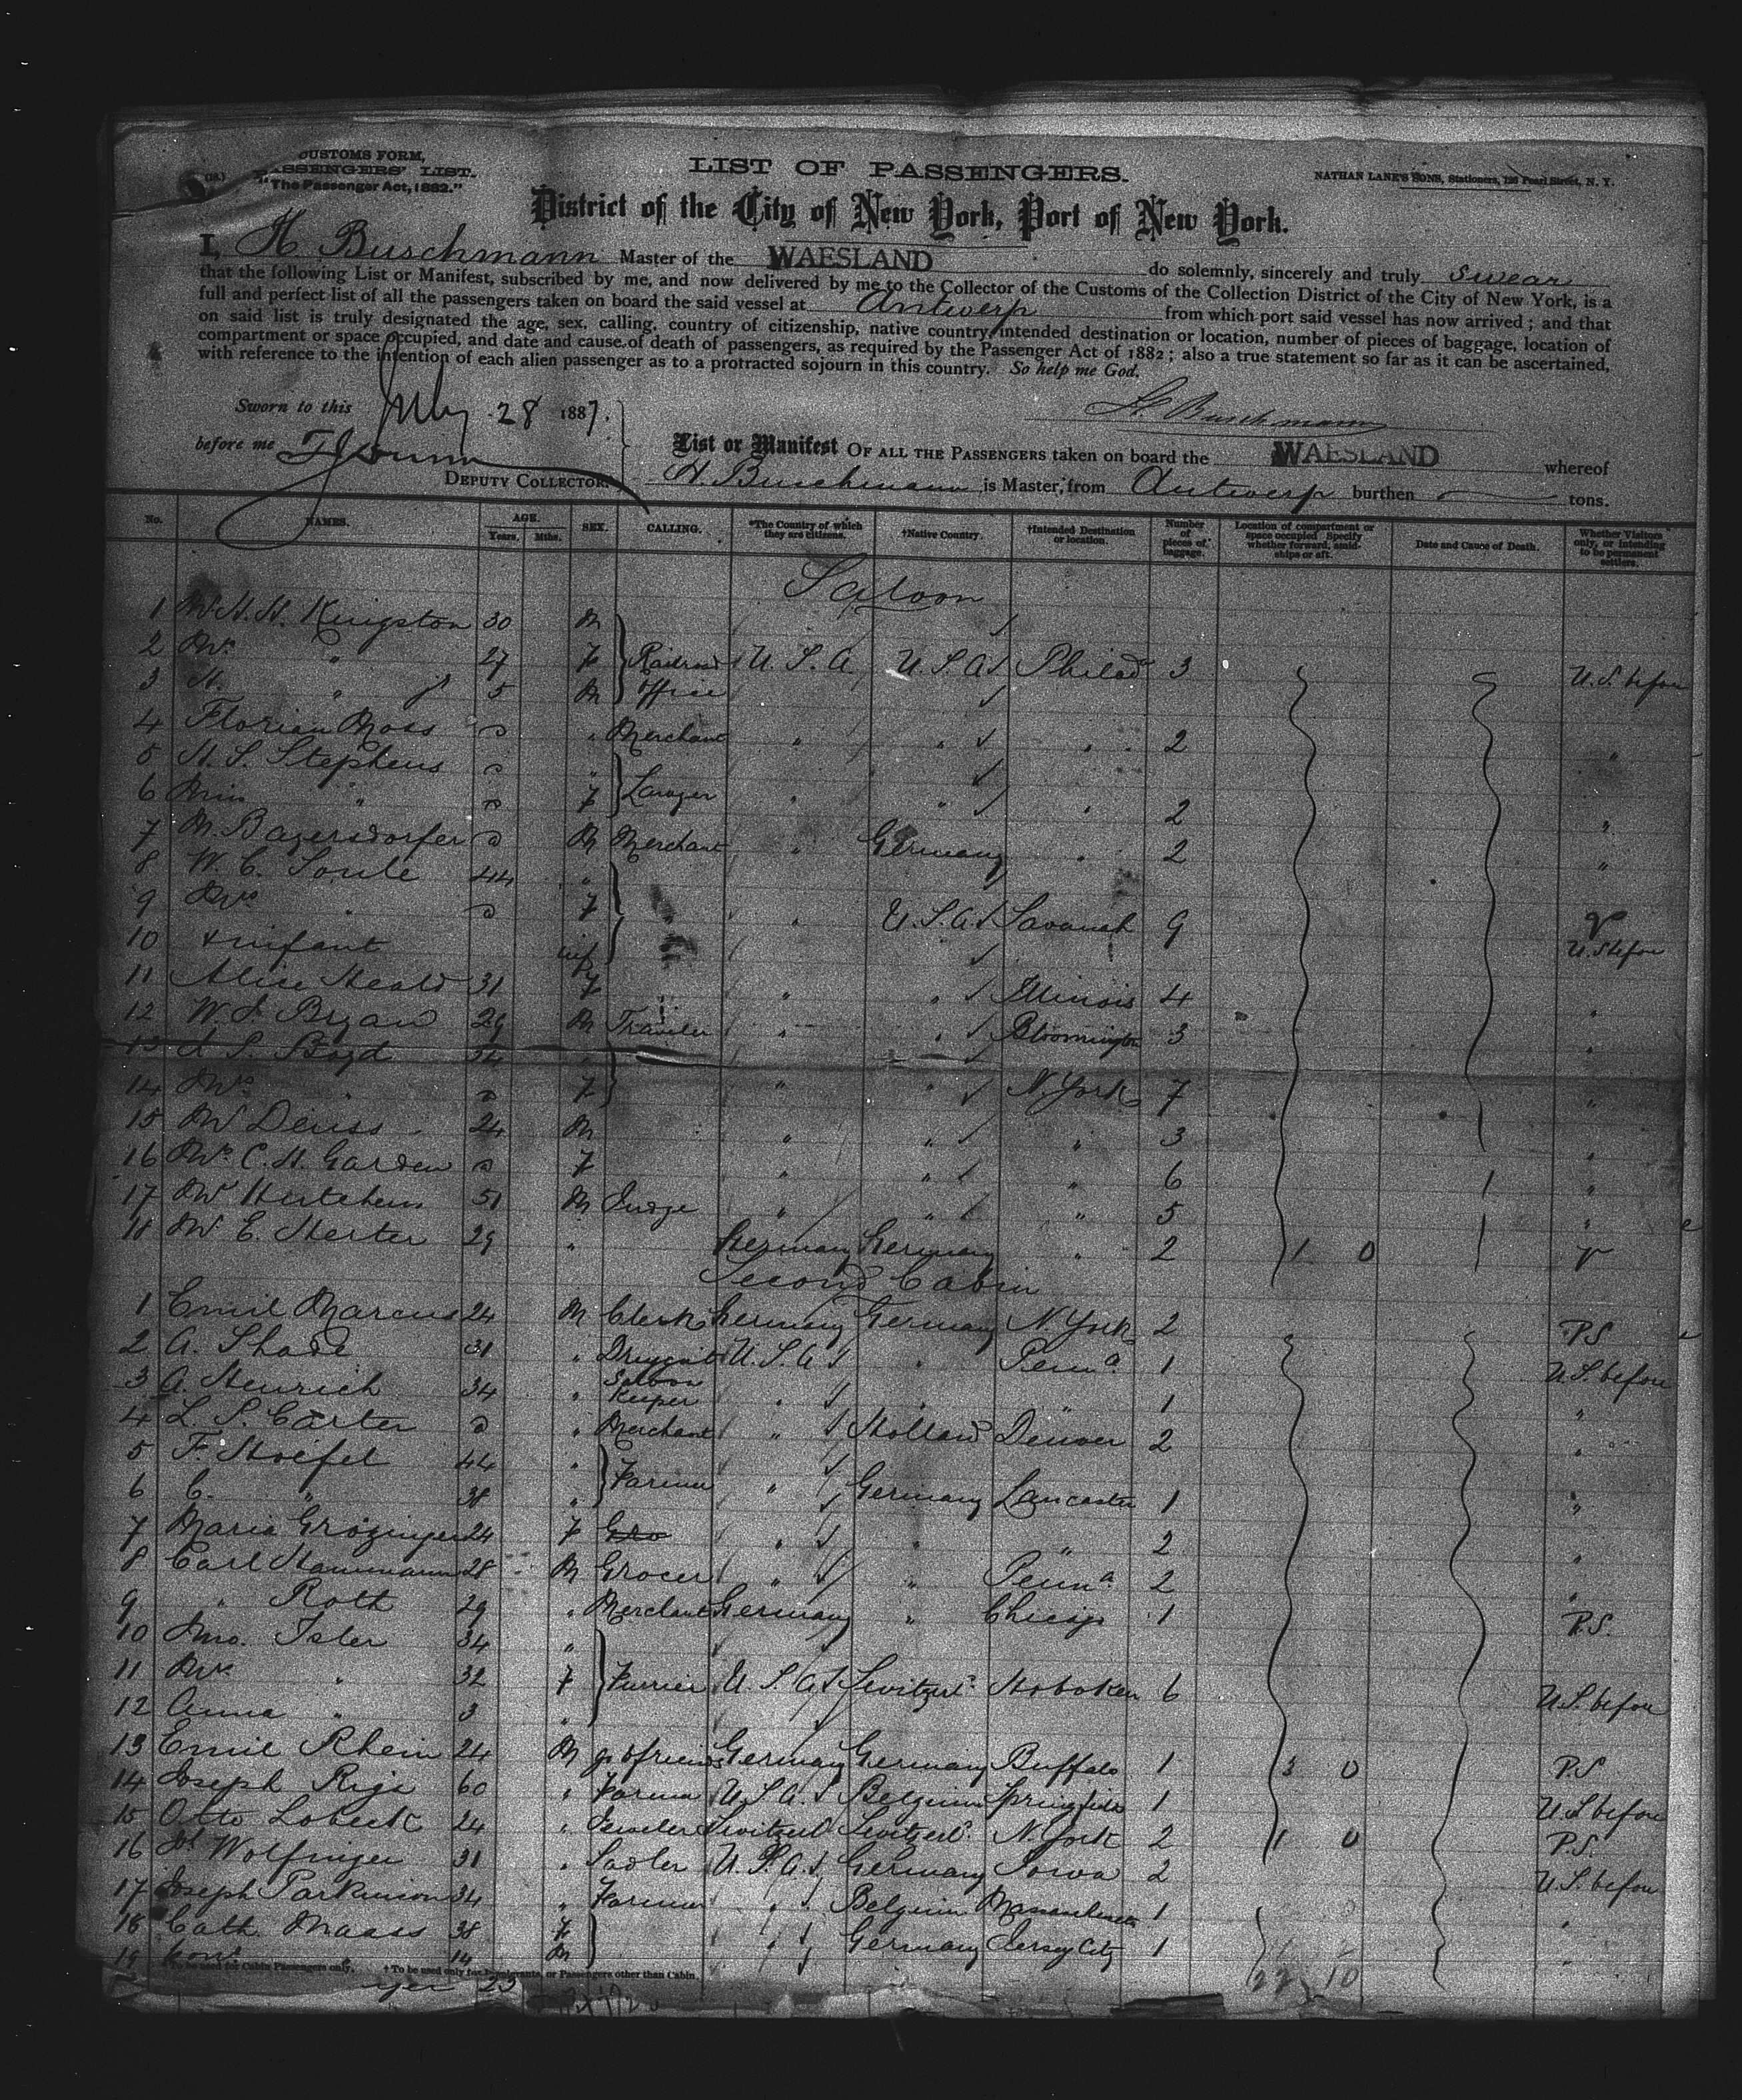 CUSTOMS FORM,
PASSENGERS' LIST.
"The Passenger Act, 1882."
LIST OF PASSENGERS.
NATHAN LANE'S SONS, Stationers, 126 Pearl Street, N. Y.
District of the City of New York, Port of New York.
I, H. Buschmann Master of the WAESLAND do solemnly, sincerely and truly swear
that the following List or Manifest, subscribed by me, and now delivered by me to the Collector of the Customs of the Collection District of the City of New York, is a
full and perfect list of all the passengers taken on board the said vessel at Antwerp from which port said vessel has now arrived; and that
on said list is truly designated the age, sex, calling, country of citizenship, native country, intended destination or location, number of pieces of baggage, location of
compartment or space occupied, and date and cause of death of passengers, as required by the Passenger Act of 1882; also a true statement so far as it can be ascertained,
with reference to the intention of each alien passenger as to a protracted sojourn in this country. So help me God.
Sworn to this July 28 1887.
H. Buschmann
before me
DEPUTY COLLECTOR.
List or Manifest OF ALL THE PASSENGERS taken on board the WAESLAND whereof
H. Buschmann is Master, from Antwerp burthen tons.
No. NAMES. AGE. Years. Mths. SEX. CALLING. *The Country of which they are citizens. †Native Country. †Intended Destination or location. Number of pieces of baggage. Location of compartment or space occupied Specify whether forward, amidships or aft. Date and Cause of Death. Whether Visitors only, or intending to be permanent settlers.
Saloon
1 Mr H. H. Kingston 30 M
2 Mrs " 27 F Railroad office U. S. A. U. S. A. Philad 3 U. S. before
3 H. " Jr 5 M
4 Florian Moss " Merchant " " " 2 "
5 H. S. Stephens "
6 Miss " F Lawyer " " " 2 "
7 M. Bayersdorfer M Merchant " Germany " 2 "
8 W. C. Soule 44 "
9 Mrs " F " " U. S. A. Savanah 9
10 + infant inf U. S. before
11 Alice Heald 31 F " " Illinois 4 "
12 W. J. Bryan 29 M Traveler " " Bloomington 3 "
13 Boyd 34 "
14 Mrs " F " " N. York 7 "
15 Mr Deiss 24 M " " " 3 "
16 Mrs C. H. Garden F " " " 6 "
17 Mr Hutchens 51 M Judge " " " 5 "
18 Mr E. Herter 29 " Germany Germany " 2 1 0 V
Second Cabin
1 Emil Marcus 24 M Clerk Germany Germany N. York 2 P.S
2 A. Shade 31 " Druggist U. S. A " Penna 1 U.S. before
3 A. Henrich 34 " Saloon Keeper " " " 1 "
4 L. S. Carter " Merchant " Holland Denver 2 "
5 F. Stoifel 44 "
6 C. " 38 " Farmer " Germany Lancaster 1 "
7 Maria Grozinger 24 F Gro " " " 2 "
8 Carl Hammann 28 M Grocer " " Penna 2 "
9 " Roth 29 " Merchant Germany " Chicago 1 P.S.
10 Jno. Isler 34 "
11 Mrs " 32 F Furrier U. S. A. Switzerl. Hoboken 6 U.S. before
12 Anna " 3 "
13 Emil Rhein 24 M go to friends Germany Germany Buffalo 1 3 0 P.S
14 Joseph Rigi 60 " Farmer U.S.A. Belgium Springfield 1 U.S. before
15 Otto Lobeck 24 " Jeweler Switzerl Switzerl. N. York 2 1 0 P.S.
16 Wolfinger 31 " Sadler U.S.A. Germany Iowa 2 U.S. before
17 Joseph Parkinson 34 " Farmer " Belgium Massachusetts 1 "
18 Cath Maass 38 F " Germany Jersey City 1 "
19 " 14 M
* To be used for Cabin Passengers only. † To be used only for Immigrants, or Passengers other than Cabin.
22 10